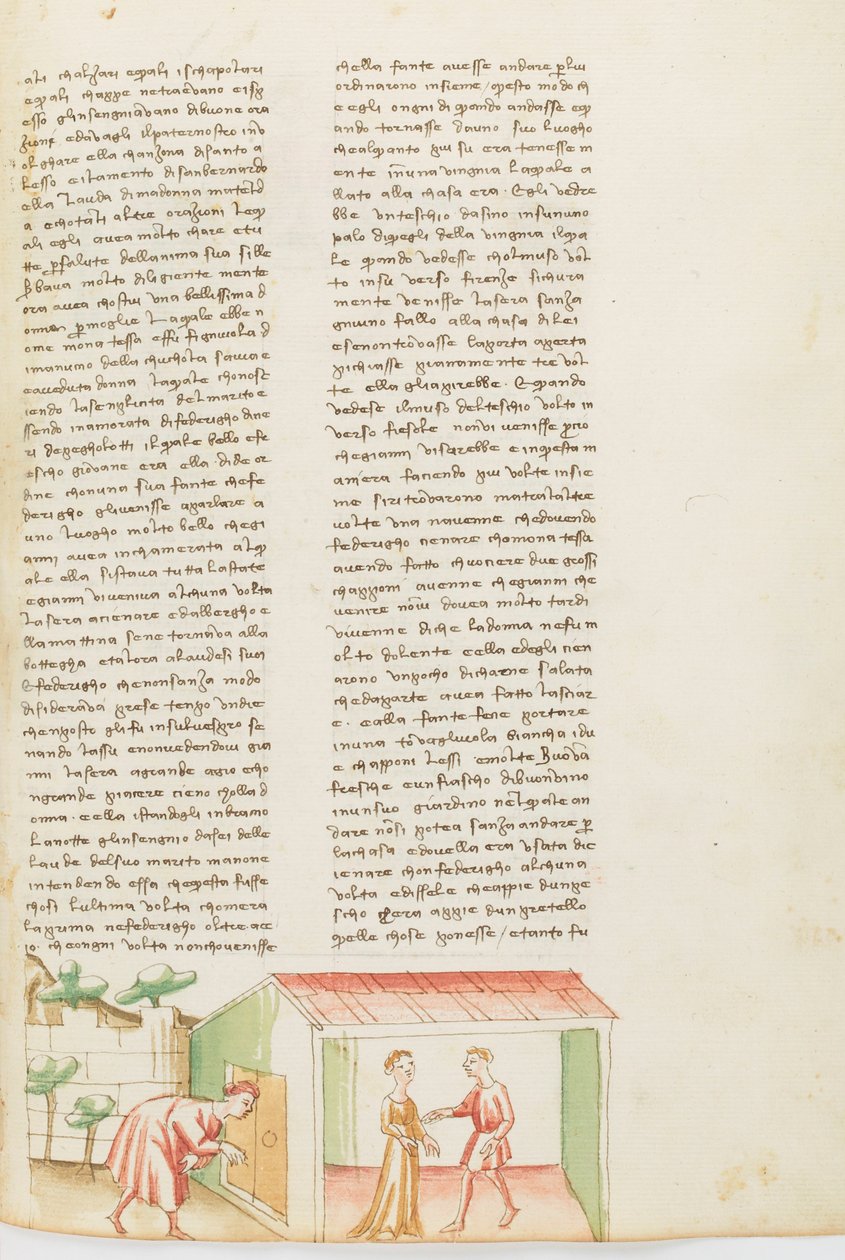 ati chalzari eq̃ali ischapolari
eq̃ali chappe netraevano eisp
esso glinsengniavano dibuone ora
zioni edavagli ilpaternostro inv
olghare ella chanzona disanto a
lesso eilamento disanbernardo
ella lauda dimadonna mateld
a echotati altre orazioni leq̃
ali egli avea molto chare etu
tte p̃salute dellanima sua sille
s̃bava molto diligiente mente
ora avea chostui una bellissima d
onna p̃moglie laq̃ale ebbe n
ome mona tessa effu figniuola d
imanucio della chuchola savia e
eaveduta donna laq̃ale chonosc
iendo lasenplicita delmarito e
ssendo inamorata difederigho dine
ri depegholotti ilq̃ale bello efr
escho giovane era ella dide or
dine chonuna sua fante chefe
derigho glivenisse aparlare a
uno luogho molto bello chegi
anni avea inchamerata alq̃
ale ella sistava tutta lastate
egianni viveniva alchuna volta
lasera acienare edalbergho e
llamattina sene tornava alla
bottegha etalora alaudesi suoi
Efederigho chenonsanza modo
disiderava prese tenpo undie
chenposto glifu insulvespro se
nando lassu enonvedendovi gia
nni lasera agrande agio echo
ngrande piacere cieno cholla d
onna · eella istandogli inbracio
lanotte glinsengnio dasei delle
laude delsuo marito manone
intendendo essa cheq̃esta fusse
chosi lultima volta chomera
laprima nefederigho oltre acc
io · cheongni volta nonchovenisse
chella fante avesse andare p̃lui
ordinarono insieme / q̃esto modo ch
e egli ongni di q̃ando andasse eq̃
ando tornasse dauno suo luogho
chealq̃anto piu su era tenesse m
ente inuna vingnia laq̃ale a
llato alla chasa era · Egli vedre
bbe unteschio dasino insununo
palo diq̃egli della vingnia ilq̃a
le q̃ando vedesse cholmuso vol
to insu verso firenze sichura
mente venisse lasera sanza
gniuno fallo alla chasa dilei
esenontrovasse laporta aperta
pichiasse pianamente tre vol
te ella gliapirebbe · Eq̃ando
vedese ilmuso delteschio volto in
verso fiesole nonvi venisse p̃cio
chegianni visarebbe einq̃esta m
aniera faciendo piu volte insie
me siritrovarono matralaltre
volte una navenne chedovendo
federigho cienare chomona tessa
avendo fatto chuociere due grossi
chapponi avenne chegianni che
venire nonvi dovea molto tardi
vivenne diche ladonna nefu m
olto dolente eella edegli cien
arono unpocho dicharne salata
chedaparte avea fatto lasciar
e · ealla fante fecie portare
inuna tovagliuola biancha idu
e chapponi lessi emolte Buova
fresche eunfiascho dibuonvino
inunsuo giardino nelq̃ale an
dare nonsi potea sanza andare p̃
lachasa edovella era usata dic
ienare chonfederigho alchuna
volta edissele cheappie dunpe
scho chera appie dunpretello
q̃elle chose ponesse / etanto fu